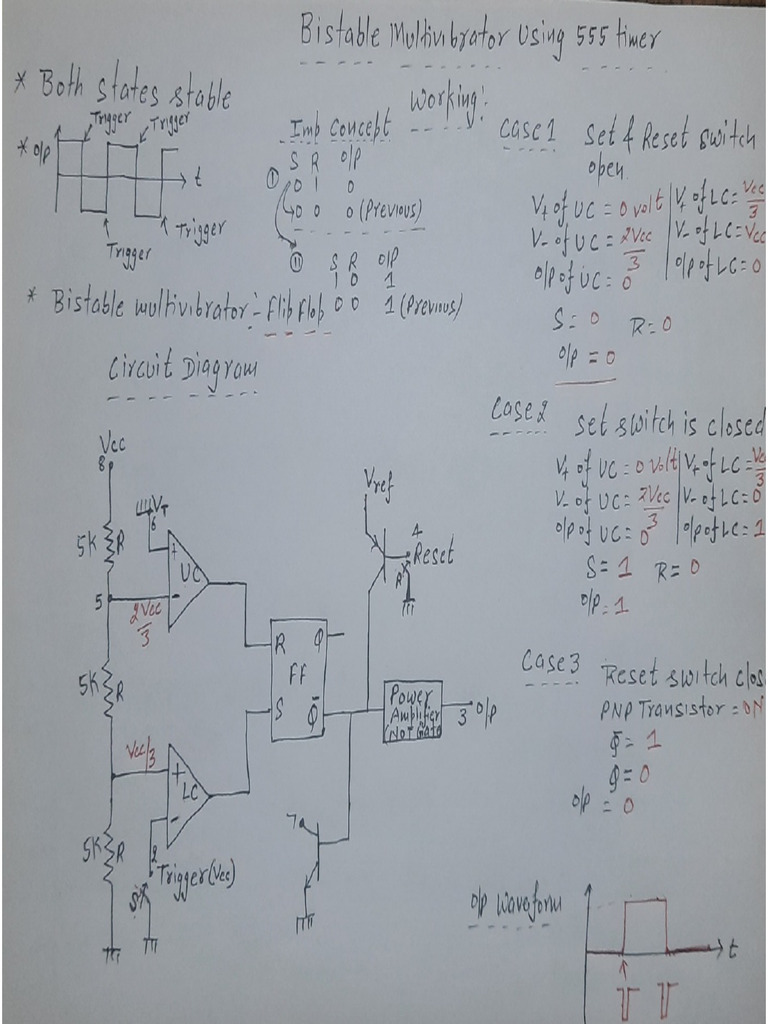 Bistable Multivibrator Using 555 timer
* Both states stable
Trigger
Trigger
* O/P
t
Trigger
Trigger
Imp Concept
S R O/P
① 0 1 0
0 0 0 (Previous)
② S R O/P
1 0 1
0 0 1 (Previous)
* Bistable multivibrator:- Flip Flop
Working:
Case 1 Set & Reset switch
open
V+ of UC = 0 volt | V+ of LC = Vcc/3
V- of UC = 2Vcc/3 | V- of LC = Vcc
O/P of UC = 0 | O/P of LC = 0
S = 0 R = 0
O/P = 0
Case 2 Set switch is closed
V+ of UC = 0 volt | V+ of LC = Vcc/3
V- of UC = 2Vcc/3 | V- of LC = 0
O/P of UC = 0 | O/P of LC = 1
S = 1 R = 0
O/P = 1
Case 3 Reset switch clos
PNP Transistor = ON
Q̅ = 1
Q = 0
O/P = 0
O/P Waveform
t
Circuit Diagram
Vcc
8
VT
6
5K R
+
UC
-
5
2Vcc/3
5K R
R Q
FF
S Q̅
Vref
4
Reset
R
Power
Amplifier
NOT Gate
3 O/P
Vcc/3
+
LC
-
5K R
2
Trigger (Vcc)
S
7